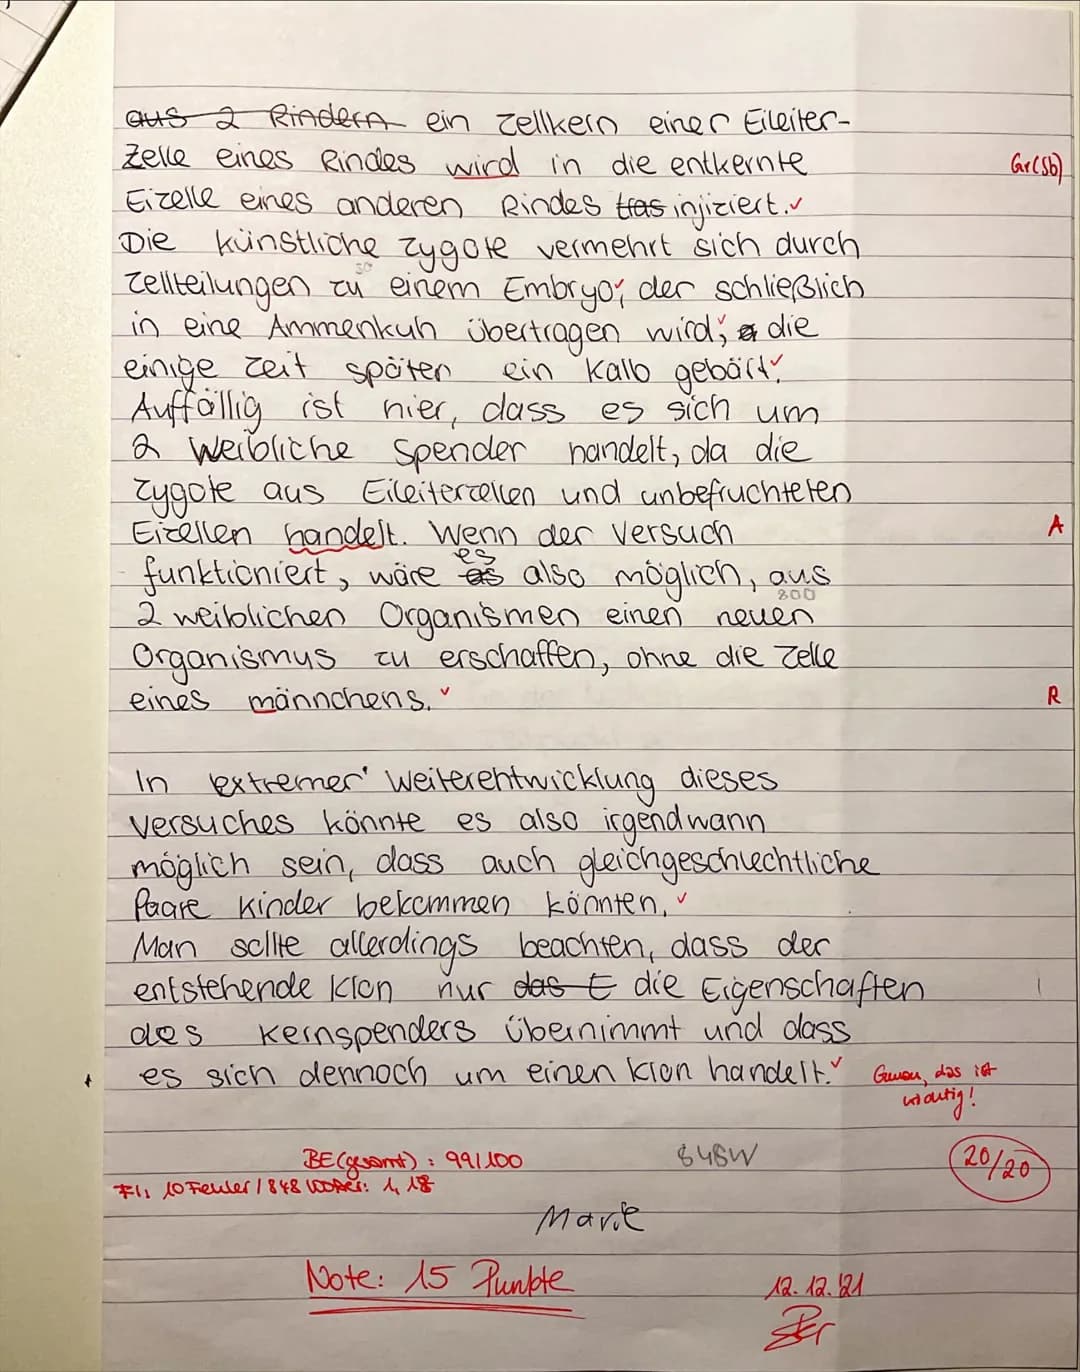 aus 2 Rindern ein Zellkern einer Eileiter-
Zelle eines Rindes wird in die entkernte
Gr(Sb)
Eizelle eines anderen Rindes injiziert.
Die künstliche Zygote vermehrt sich durch
Zellteilungen zu einem Embryo, der schließlich
in eine Ammenkuh übertragen wird, die
einige Zeit später ein Kalb gebärt.
Auffällig ist hier, dass es sich um
2 weibliche Spender handelt, da die
Zygote aus Eileiterzellen und unbefruchteten
Eizellen handelt. Wenn der Versuch
A
es
funktioniert, wäre es also möglich, aus
800
2 weiblichen Organismen einen neuen
Organismus zu erschaffen, ohne die Zelle
eines männchens.
R
In extremer Weiterentwicklung dieses
Versuches könnte es also irgendwann
möglich sein, dass auch gleichgeschlechtliche
Paare Kinder bekommen könnten.
Man sollte allerdings beachten, dass der
entstehende Klon nur das E die Eigenschaften
des Kernspenders übernimmt und dass
es sich dennoch um einen Klon handelt.
Genau, das ist
wichtig!
BE(gesamt): 99/100
848W
20/20
FI: 10 Fehler / 848 Wörter: 1,18
Marie
Note: 15 Punkte
12.12.21